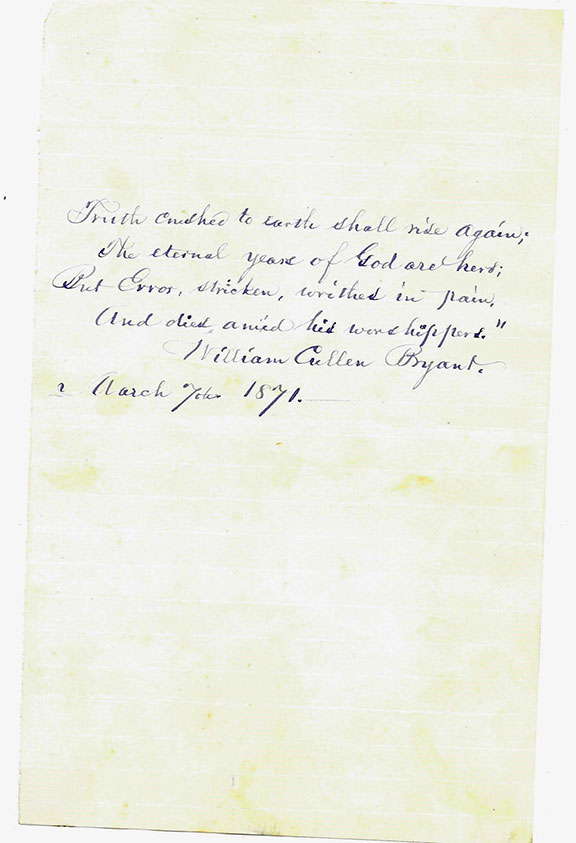 Truth crushed to earth shall rise again;
The eternal years of God are hers;
But Error, stricken, writhes in pain,
And dies amid his worshippers."
William Cullen Bryant.
March 7th 1871.